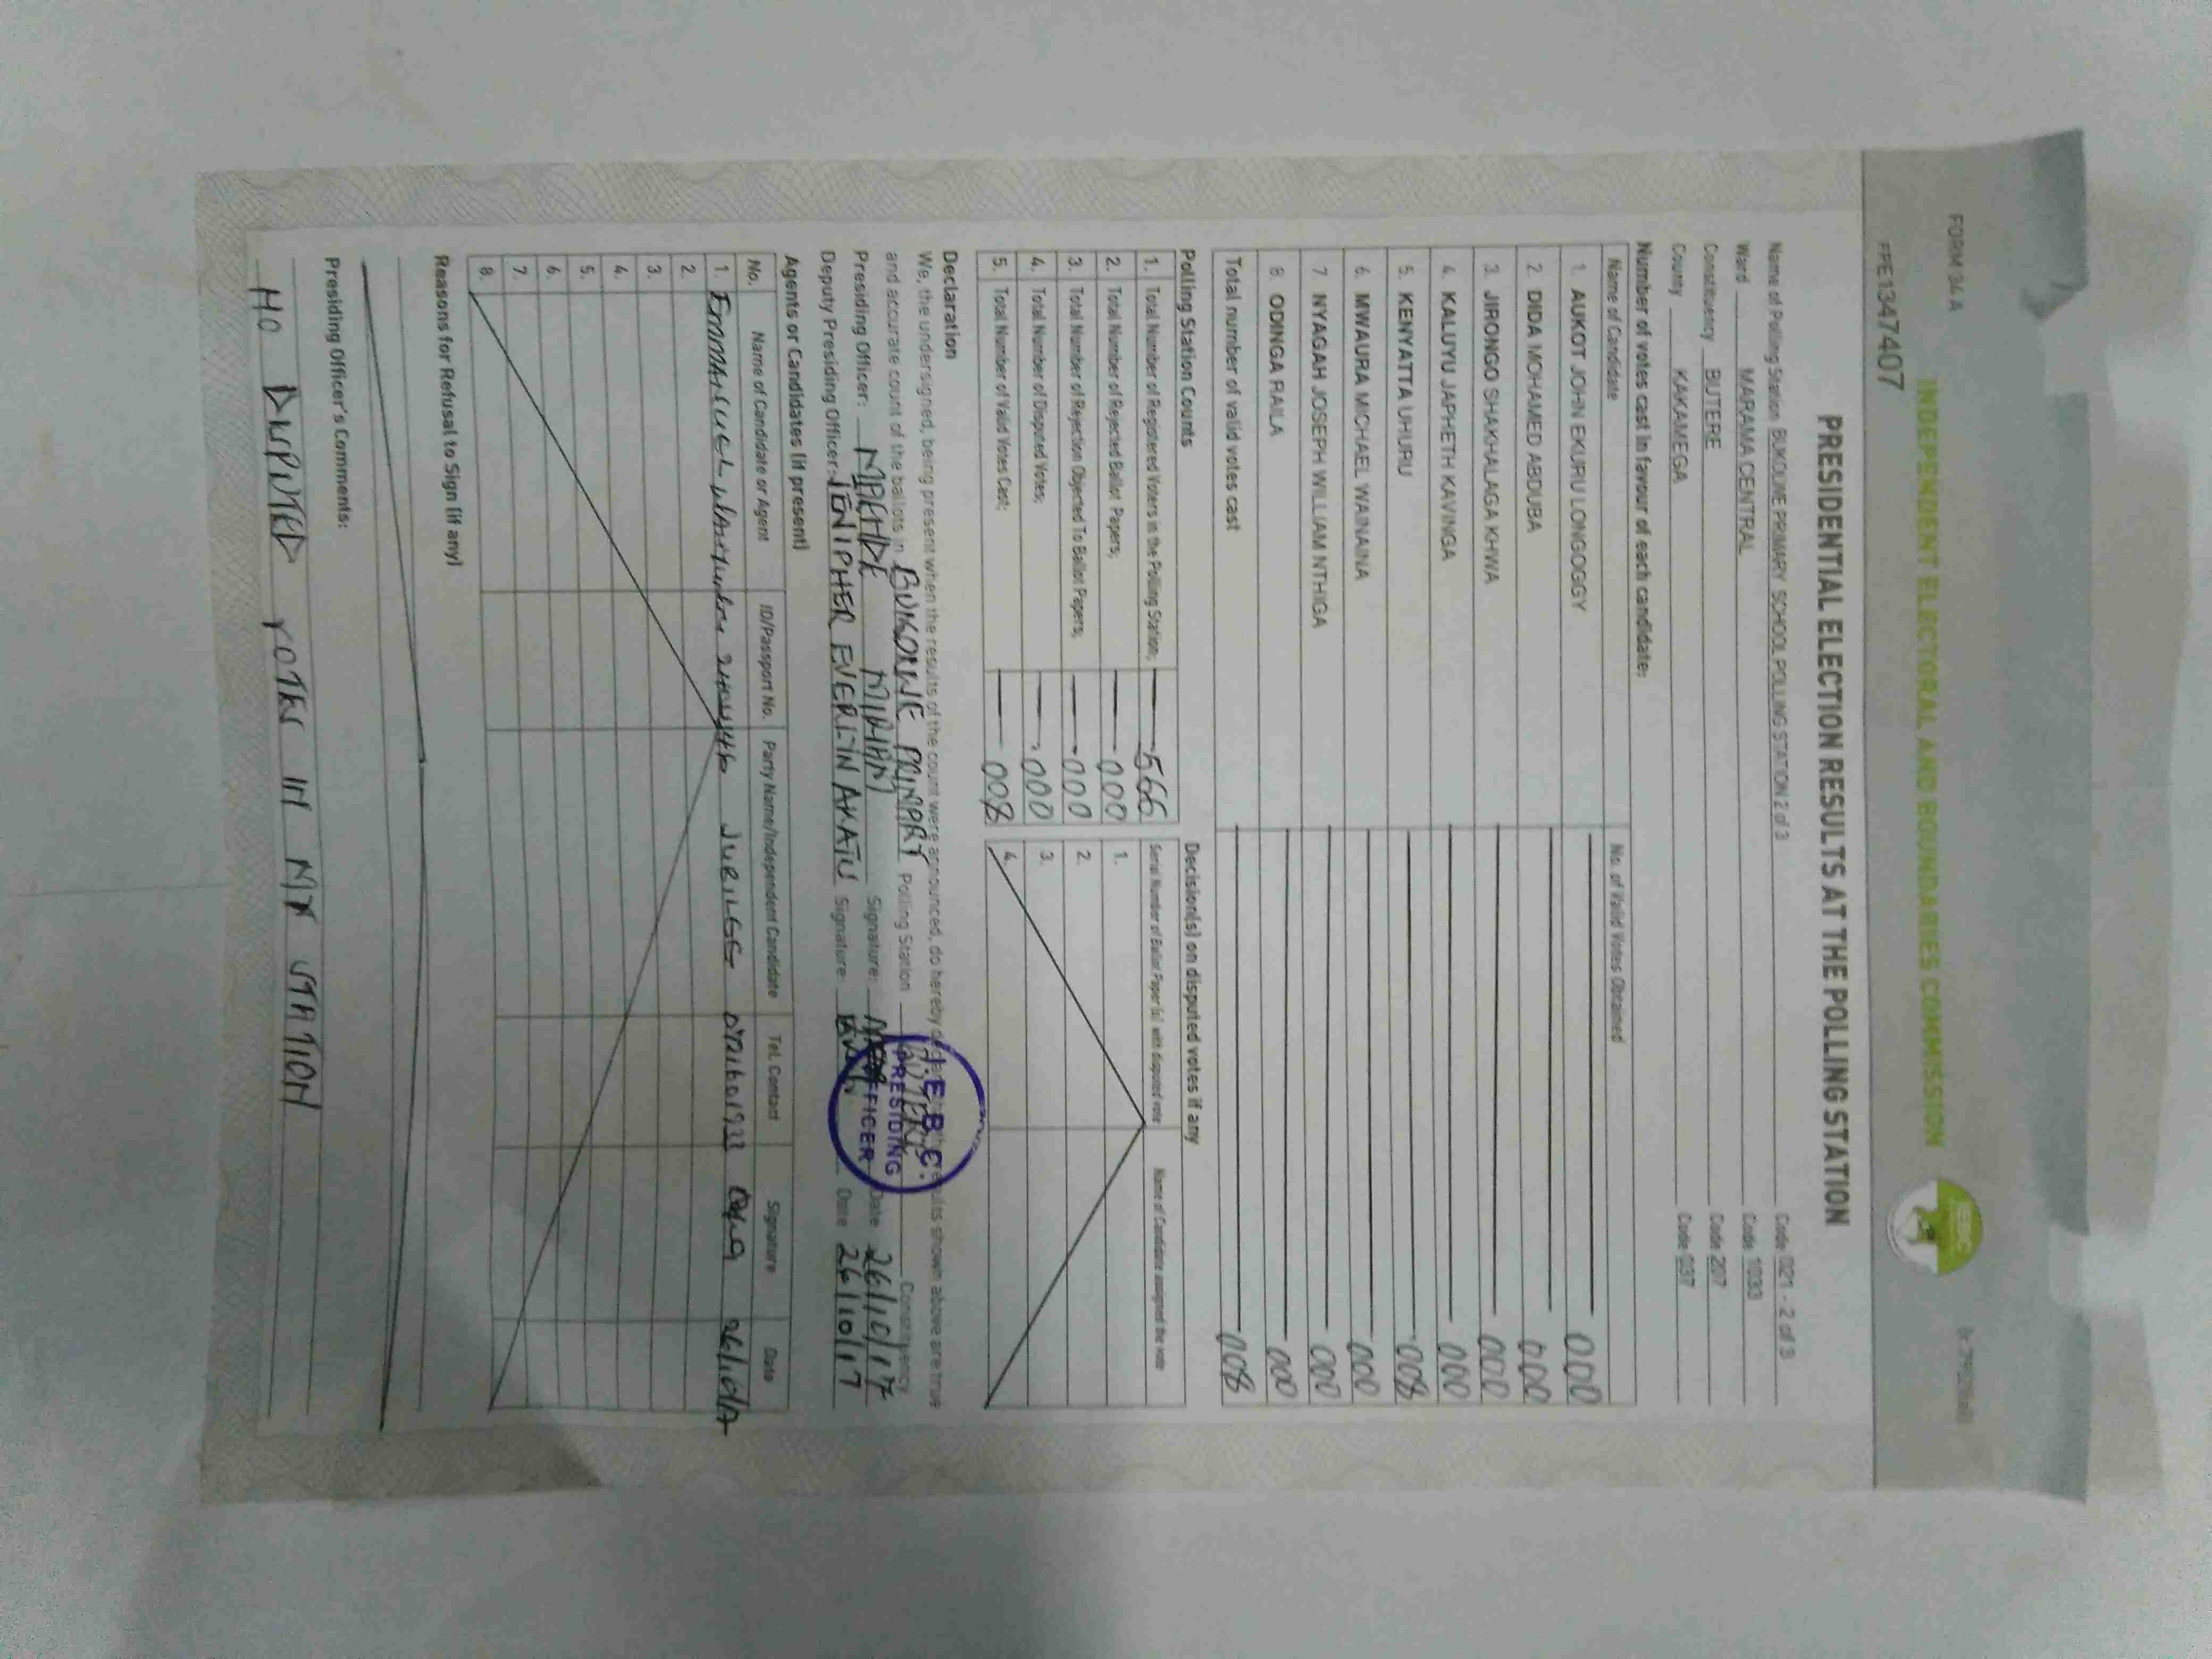 FORM 34 A
INDEPENDENT ELECTORAL AND BOUNDARIES COMMISSION
IEBC
PPE1347407
PRESIDENTIAL ELECTION RESULTS AT THE POLLING STATION
Name of Polling Station BUKOLWE PRIMARY SCHOOL POLLING STATION 2 of 3 Code 021 - 2 of 3
Ward MARAMA CENTRAL Code 1033
Constituency BUTERE Code 207
County KAKAMEGA Code 037
Number of votes cast in favour of each candidate:
Name of Candidate No. of Valid Votes Obtained
1. AUKOT JOHN EKURU LONGOGGY 000
2. DIDA MOHAMED ABDUBA 000
3. JIRONGO SHAKHALAGA KHWA 000
4. KALUYU JAPHETH KAVINGA 000
5. KENYATTA UHURU 008
6. MWAURA MICHAEL WAINAINA 000
7. NYAGAH JOSEPH WILLIAM NTHIGA 000
8. ODINGA RAILA 000
Total number of valid votes cast 008
Polling Station Counts Decision(s) on disputed votes if any
1. Total Number of Registered Voters in the Polling Station; 566 Serial Number of Ballot Paper (s) with disputed vote Name of Candidate assigned the vote
2. Total Number of Rejected Ballot Papers; 000 1.
3. Total Number of Rejection Objected To Ballot Papers; 000 2.
4. Total Number of Disputed Votes; 000 3.
5. Total Number of Valid Votes Cast; 008 4.
Declaration
We, the undersigned, being present when the results of the count were announced, do hereby declare that the results shown above are true
and accurate count of the ballots in BUKOLWE PRIMARY Polling Station BUTERE Constituency
Presiding Officer: Signature: Date 26/10/17
Deputy Presiding Officer: JENIPHER EVERLIN AKATU Signature: Date 26/10/17
I.E.B.C.
PRESIDING
OFFICER
Agents or Candidates (if present)
No. Name of Candidate or Agent ID/Passport No. Party Name/Independent Candidate Tel. Contact Signature Date
1. Emmanuel JUBILEE 26/10/17
2.
3.
4.
5.
6.
7.
8.
Reasons for Refusal to Sign (if any)
Presiding Officer's Comments:
NO DISPUTED VOTES IN MY STATION